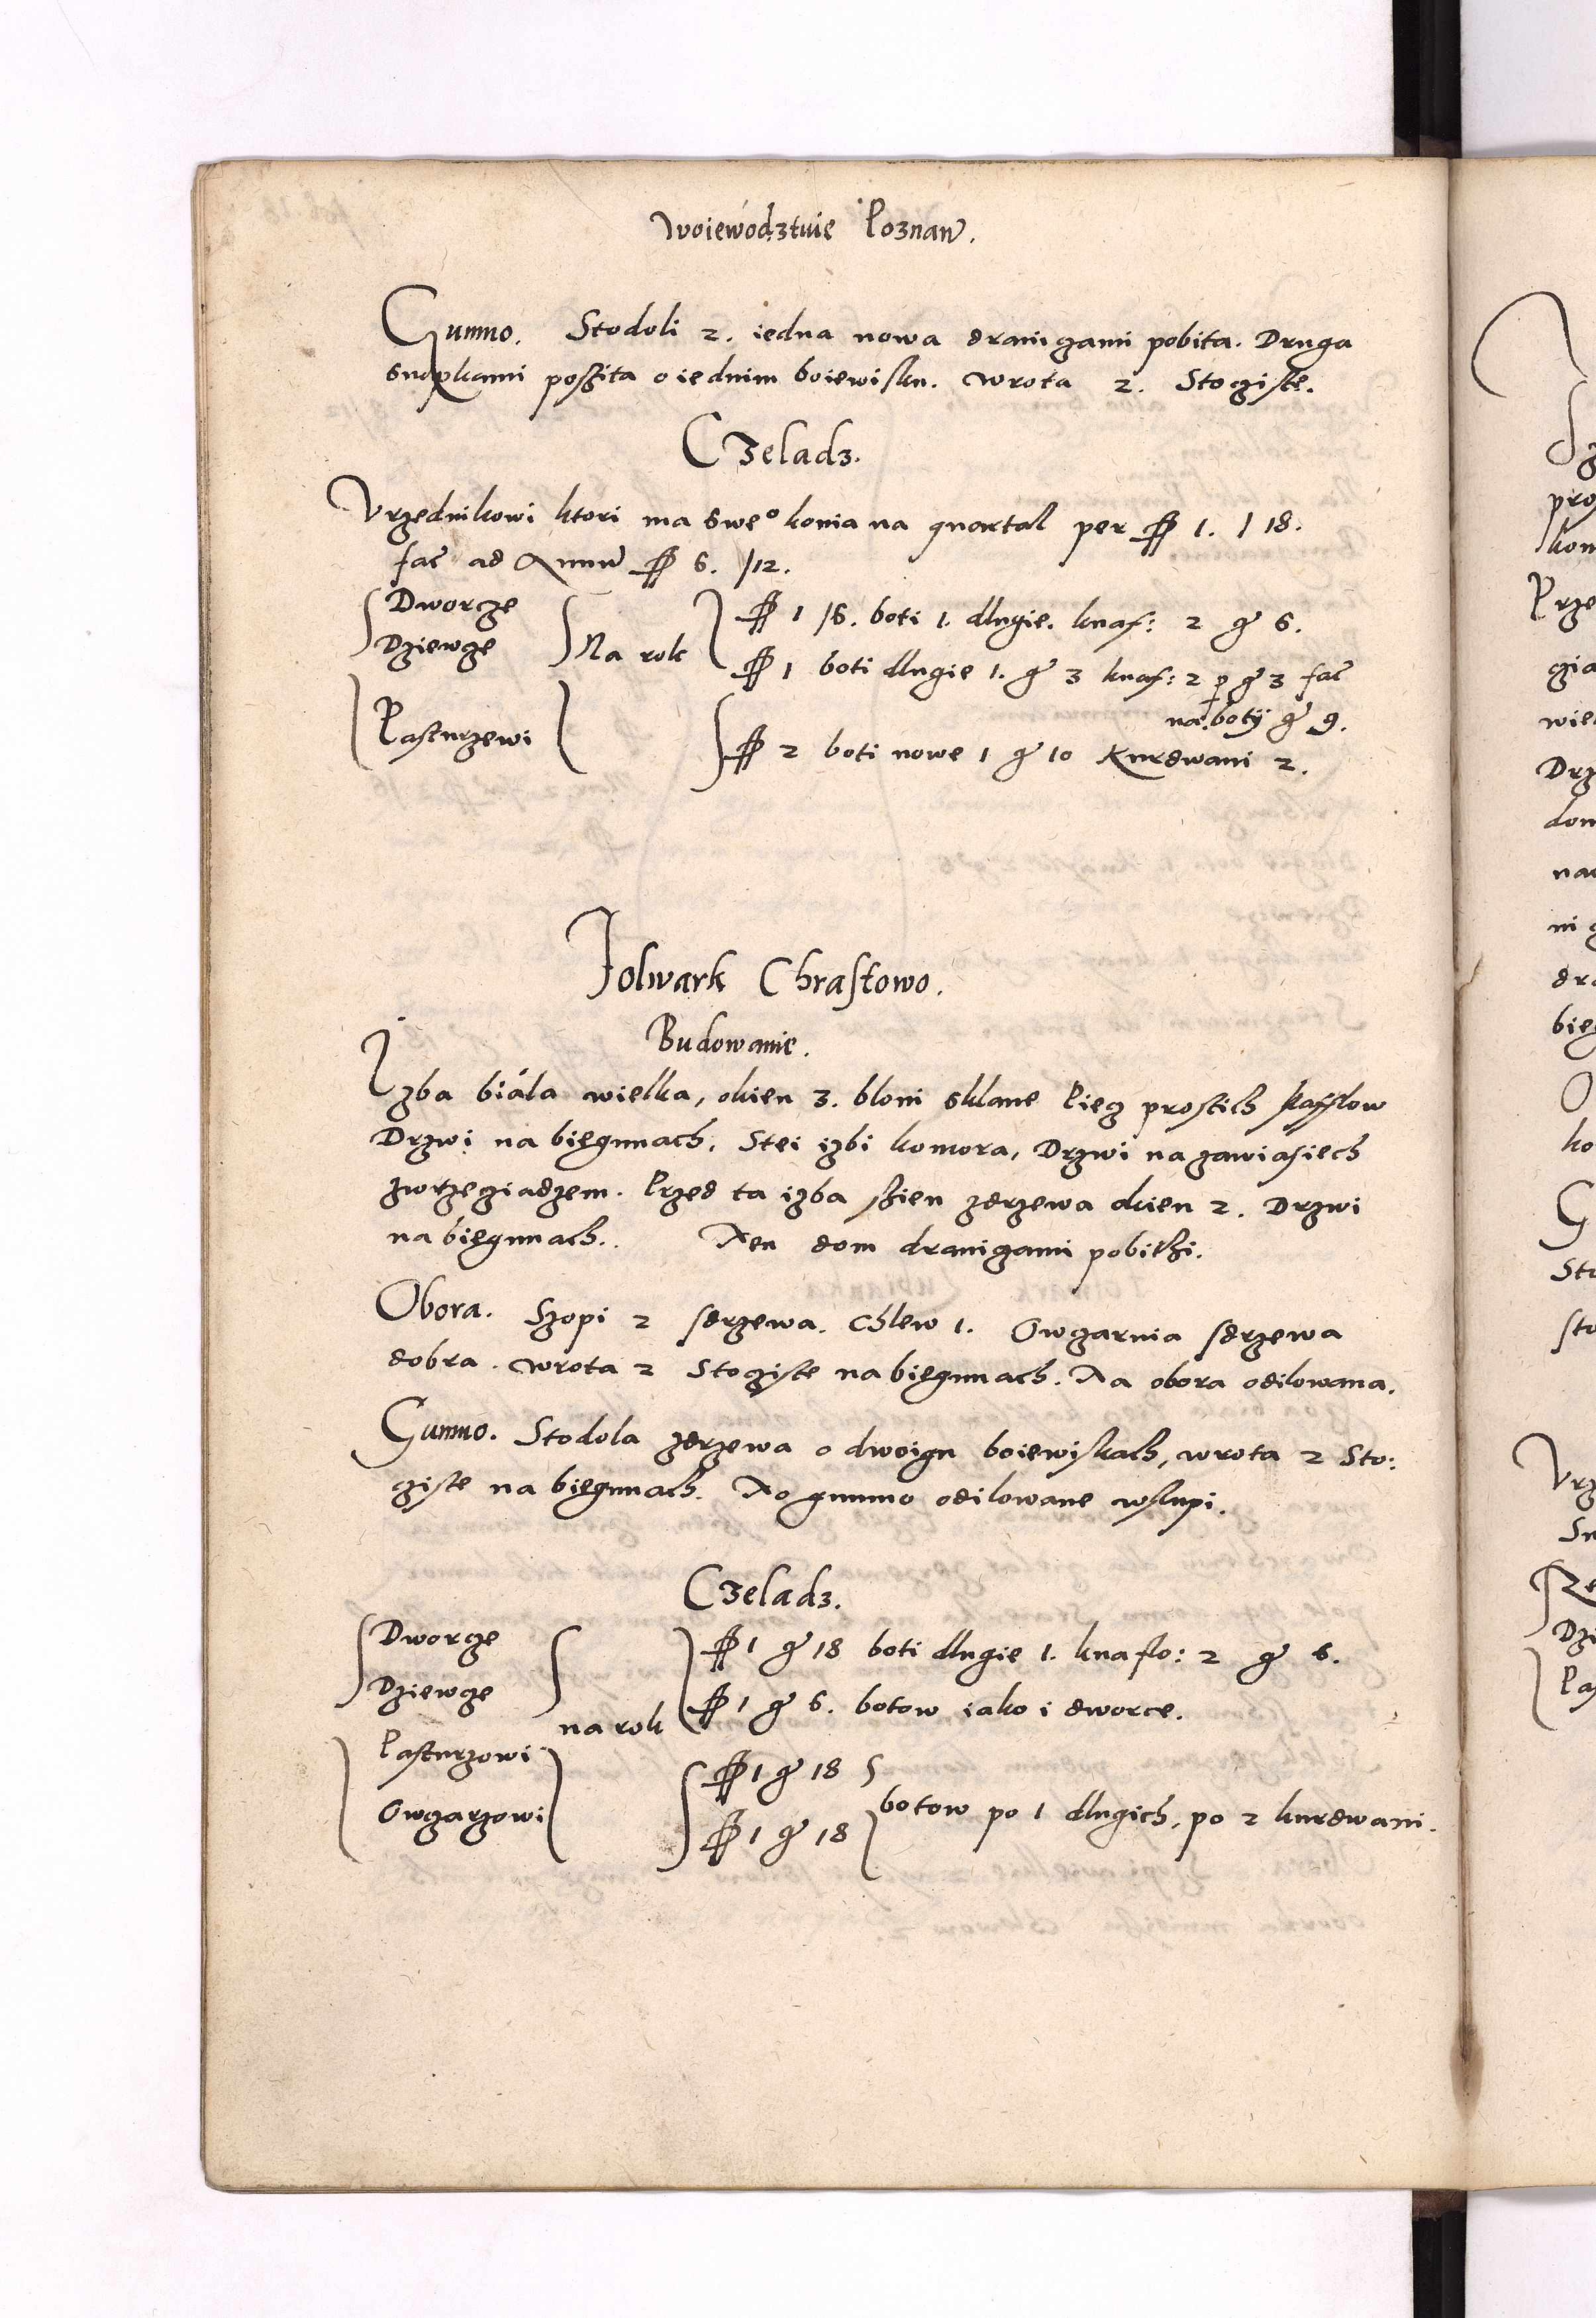 Woiewodztwie Poznań.
Gumno. Stodoli 2. iedna nowa dranigami pobita. Druga
snopkami poszita o iednim boiewisku. Wrota 2. Stogiste.
Czeladz.
Vrzednikowi ktori ma sweᵒ konia na quartal per ff 1. / 18.
fac̄ ad Annū ff 6. /12.
Dworge
Dziewge
Na rok
ff 1 /6. boti 1. dlugie. knaf: 2 gr 6.
ff 1 boti dlugie 1. gr 3 knaf: 2 p gr 3 fac̄
na boty gr 9.
Pasturzewi
ff 2 boti nowe 1 gr 10 Kurdwani 2.
Folwark Chrastowo.
Budowanie.
Izba biála wielka, okien 3. bloni sklane Pieg prostich kafflow
Drzwi na biegunach. Stei izbi komora, Drzwi na zawiasiech
zwrzegiadzem. Przed ta izba szien zdrzewa okien 2. Drzwi
na biegunach. Ten dom dranigami pobithi.
Obora. Szopi 2 sdrzewa. Chlew 1. Owgarnia sdrzewa
dobra. Wrota 2 Stogiste na biegunach. Ta obora odilowana.
Gumno. Stodola zdrzewa o dwoigu boiewiskach, wrota 2 Sto:
giste na biegunach. To gumno odilowane wslupi.
Czeladz.
Dworge
Dziewge
na rok
ff 1 gr 18 boti dlugie 1. knaflo: 2 gr 6.
ff 1 gr 6. botow iako i dworce.
Pasturzowi
Owgarzowi
ff 1 gr 18
ff 1 gr 18
botow po 1 dlugich, po 2 kurdwani.